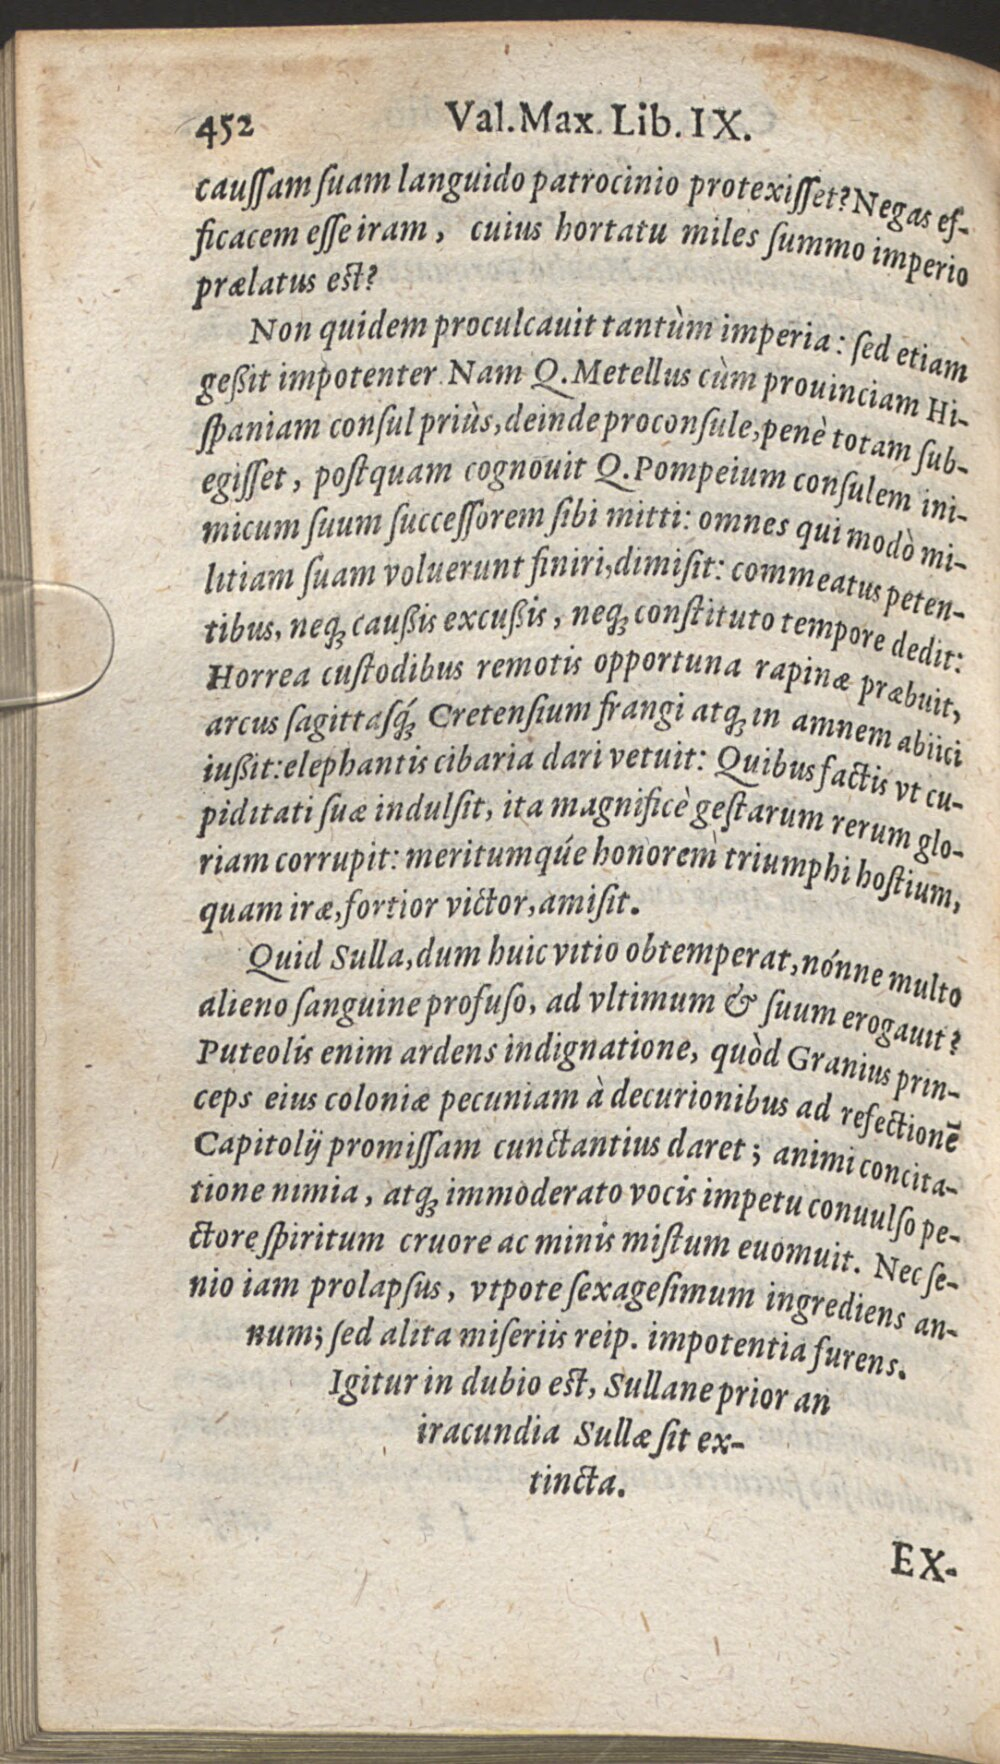 452 Val. Max. Lib. IX.
cauſſam ſuam languido patrocinio protexiſſet? Negas ef-
ficacem eſſe iram, cuius hortatu miles ſummo imperio
prælatus eſt?
Non quidem proculcauit tantùm imperia: ſed etiam
geßit impotenter. Nam Q. Metellus cùm prouinciam Hi-
ſpaniam conſul priùs, deinde proconſule, penè totam ſub-
egiſſet, poſtquam cognouit Q. Pompeium conſulem ini-
micum ſuum ſucceſſorem ſibi mitti: omnes qui modò mi-
litiam ſuam voluerunt finiri, dimiſit: commeatus peten-
tibus, neq; caußis excußis, neq; conſtituto tempore dedit:
Horrea cuſtodibus remotis opportuna rapinæ præbuit,
arcus ſagittaſq́; Cretenſium frangi atq; in amnem abiici
iußit: elephantis cibaria dari vetuit: Quibus factis vt cu-
piditati ſuæ indulſit, ita magnificè geſtarum rerum glo-
riam corrupit: meritumqúe honorem triumphi hoſtium,
quam iræ, fortior victor, amiſit.
Quid Sulla, dum huic vitio obtemperat, nónne multo
alieno ſanguine profuſo, ad vltimum & ſuum erogauit?
Puteolis enim ardens indignatione, quòd Granius prin-
ceps eius coloniæ pecuniam à decurionibus ad refectionē
Capitolij promiſſam cunctantius daret; animi concita-
tione nimia, atq; immoderato vocis impetu conuulſo pe-
ctore ſpiritum cruore ac minis miſtum euomuit. Nec ſe-
nio iam prolapſus, vtpote ſexageſimum ingrediens an-
num; ſed alita miſeriis reip. impotentia furens.
Igitur in dubio eſt, Sullane prior an
iracundia Sullæ ſit ex-
tincta.
EX-